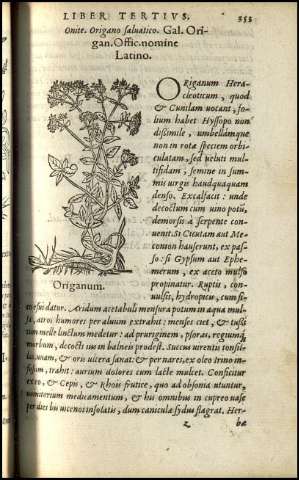 LIBER TERTIVS. 333
Onite. Origano saluatico. Gal. Ori-
gan. Offic. nomine
Latino.
ORiganum Hera-
cleoticum, quod
& Cunilam uocant, fo-
lium habet Hyssopo non
dissimile, umbellamque
non in rotæ speciem orbi-
culatam, sed ueluti mul-
tifidam, semine in sum-
mis uirgis haudquaquam
denso. Excalfacit: unde
decoctum cum uino potũ,
demorsis à serpente con-
uenit. Si Cicutam aut Me-
conion hauserint, ex pas-
so: si Gypsum aut Ephe-
merum, ex aceto mulso
propinatur. Ruptis, con-
uulsis, hydropicis, cum fi-
Origanum.
cu esui datur. Aridum acetabuli mensura potum in aqua mul-
sa, atros humores per aluum extrahit: menses ciet, & tussi
cum melle linctum medetur: ad pruriginem, psoras, regiumq́
morbum, decocti ius in balneis prodest. Succus uirentis tonsil-
las, uuam, & oris ulcera sanat: & per nares, ex oleo irino in-
fusum, trahit: aurium dolores cum lacte mulcet. Conficitur
ex eo, & Cepis, & Rhois frutice, quo ad obsonia utuntur,
uomitorium medicamentum, & his omnibus in cupreo uase
per dies uicenos insolatis, dum caniculæ sydus flagrat. Her-
z ba